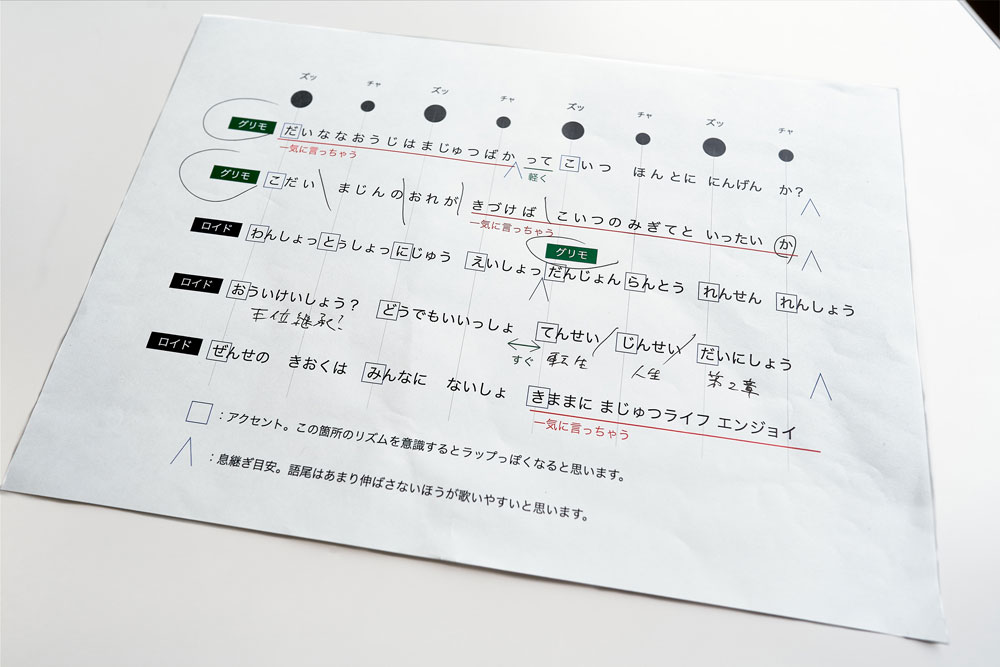 ズッ チャ ズッ チャ ズッ チャ ズッ チャ
グリモ だいななおうじはまじゅつばか って こいつ ほんとに にんげん か?
一気に言っちゃう 軽く
グリモ こだい まじんの おれが きづけば こいつのみぎてと いったい か
一気に言っちゃう
ロイド わんしょっとぅしょっにじゅう えいしょっ グリモ だんじょん らんとう れんせん れんしょう
ロイド おういけいしょう? どうでもいいっしょ てんせい じんせい だいにしょう
王位継承? すぐ 転生 人生 第2章
ロイド ぜんせの きおくは みんなに ないしょ きままに まじゅつライフ エンジョイ
一気に言っちゃう
:アクセント。この箇所のリズムを意識するとラップっぽくなると思います。
:息継ぎ目安。語尾はあまり伸ばさないほうが歌いやすいと思います。